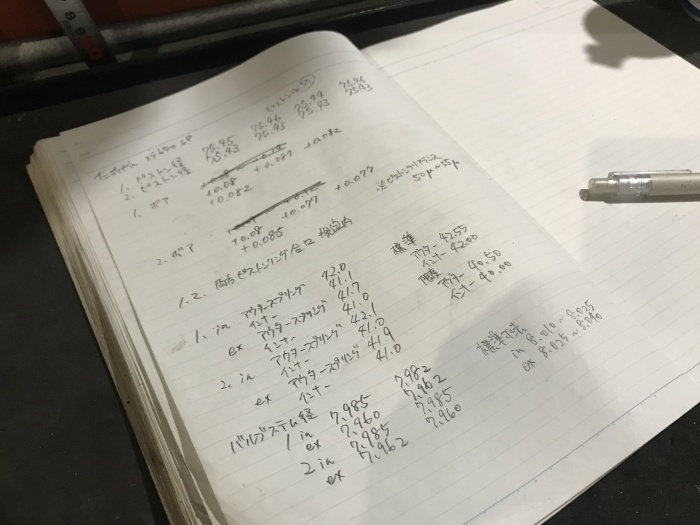 XS650SP
1. ピストン径 75.45 75.46 75.44 75.46
2. ピストン径 75.43 75.43 75.43 75.43
1. ボア
+0.08 +0.087 +0.082
+0.082
※ピストンクリアランス
50μ~55μ
2. ボア
+0.08 +0.077 +0.077
+0.085
1.2. 両方ピストンリング合口 規定内
標準
アウター 42.55
インナー 42.00
限度
アウター 40.50
インナー 40.00
1. in アウタースプリング 42.0
インナー 41.1
ex アウタースプリング 41.7
インナー 41.0
2. in アウタースプリング 42.1
インナー 41.0
ex アウタースプリング 41.9
インナー 41.0
標準寸法
in 8.010~8.025
ex 8.025~8.040
バルブステム径
1 in 7.985 7.982
ex 7.960 7.962
2 in 7.985 7.985
ex 7.962 7.960